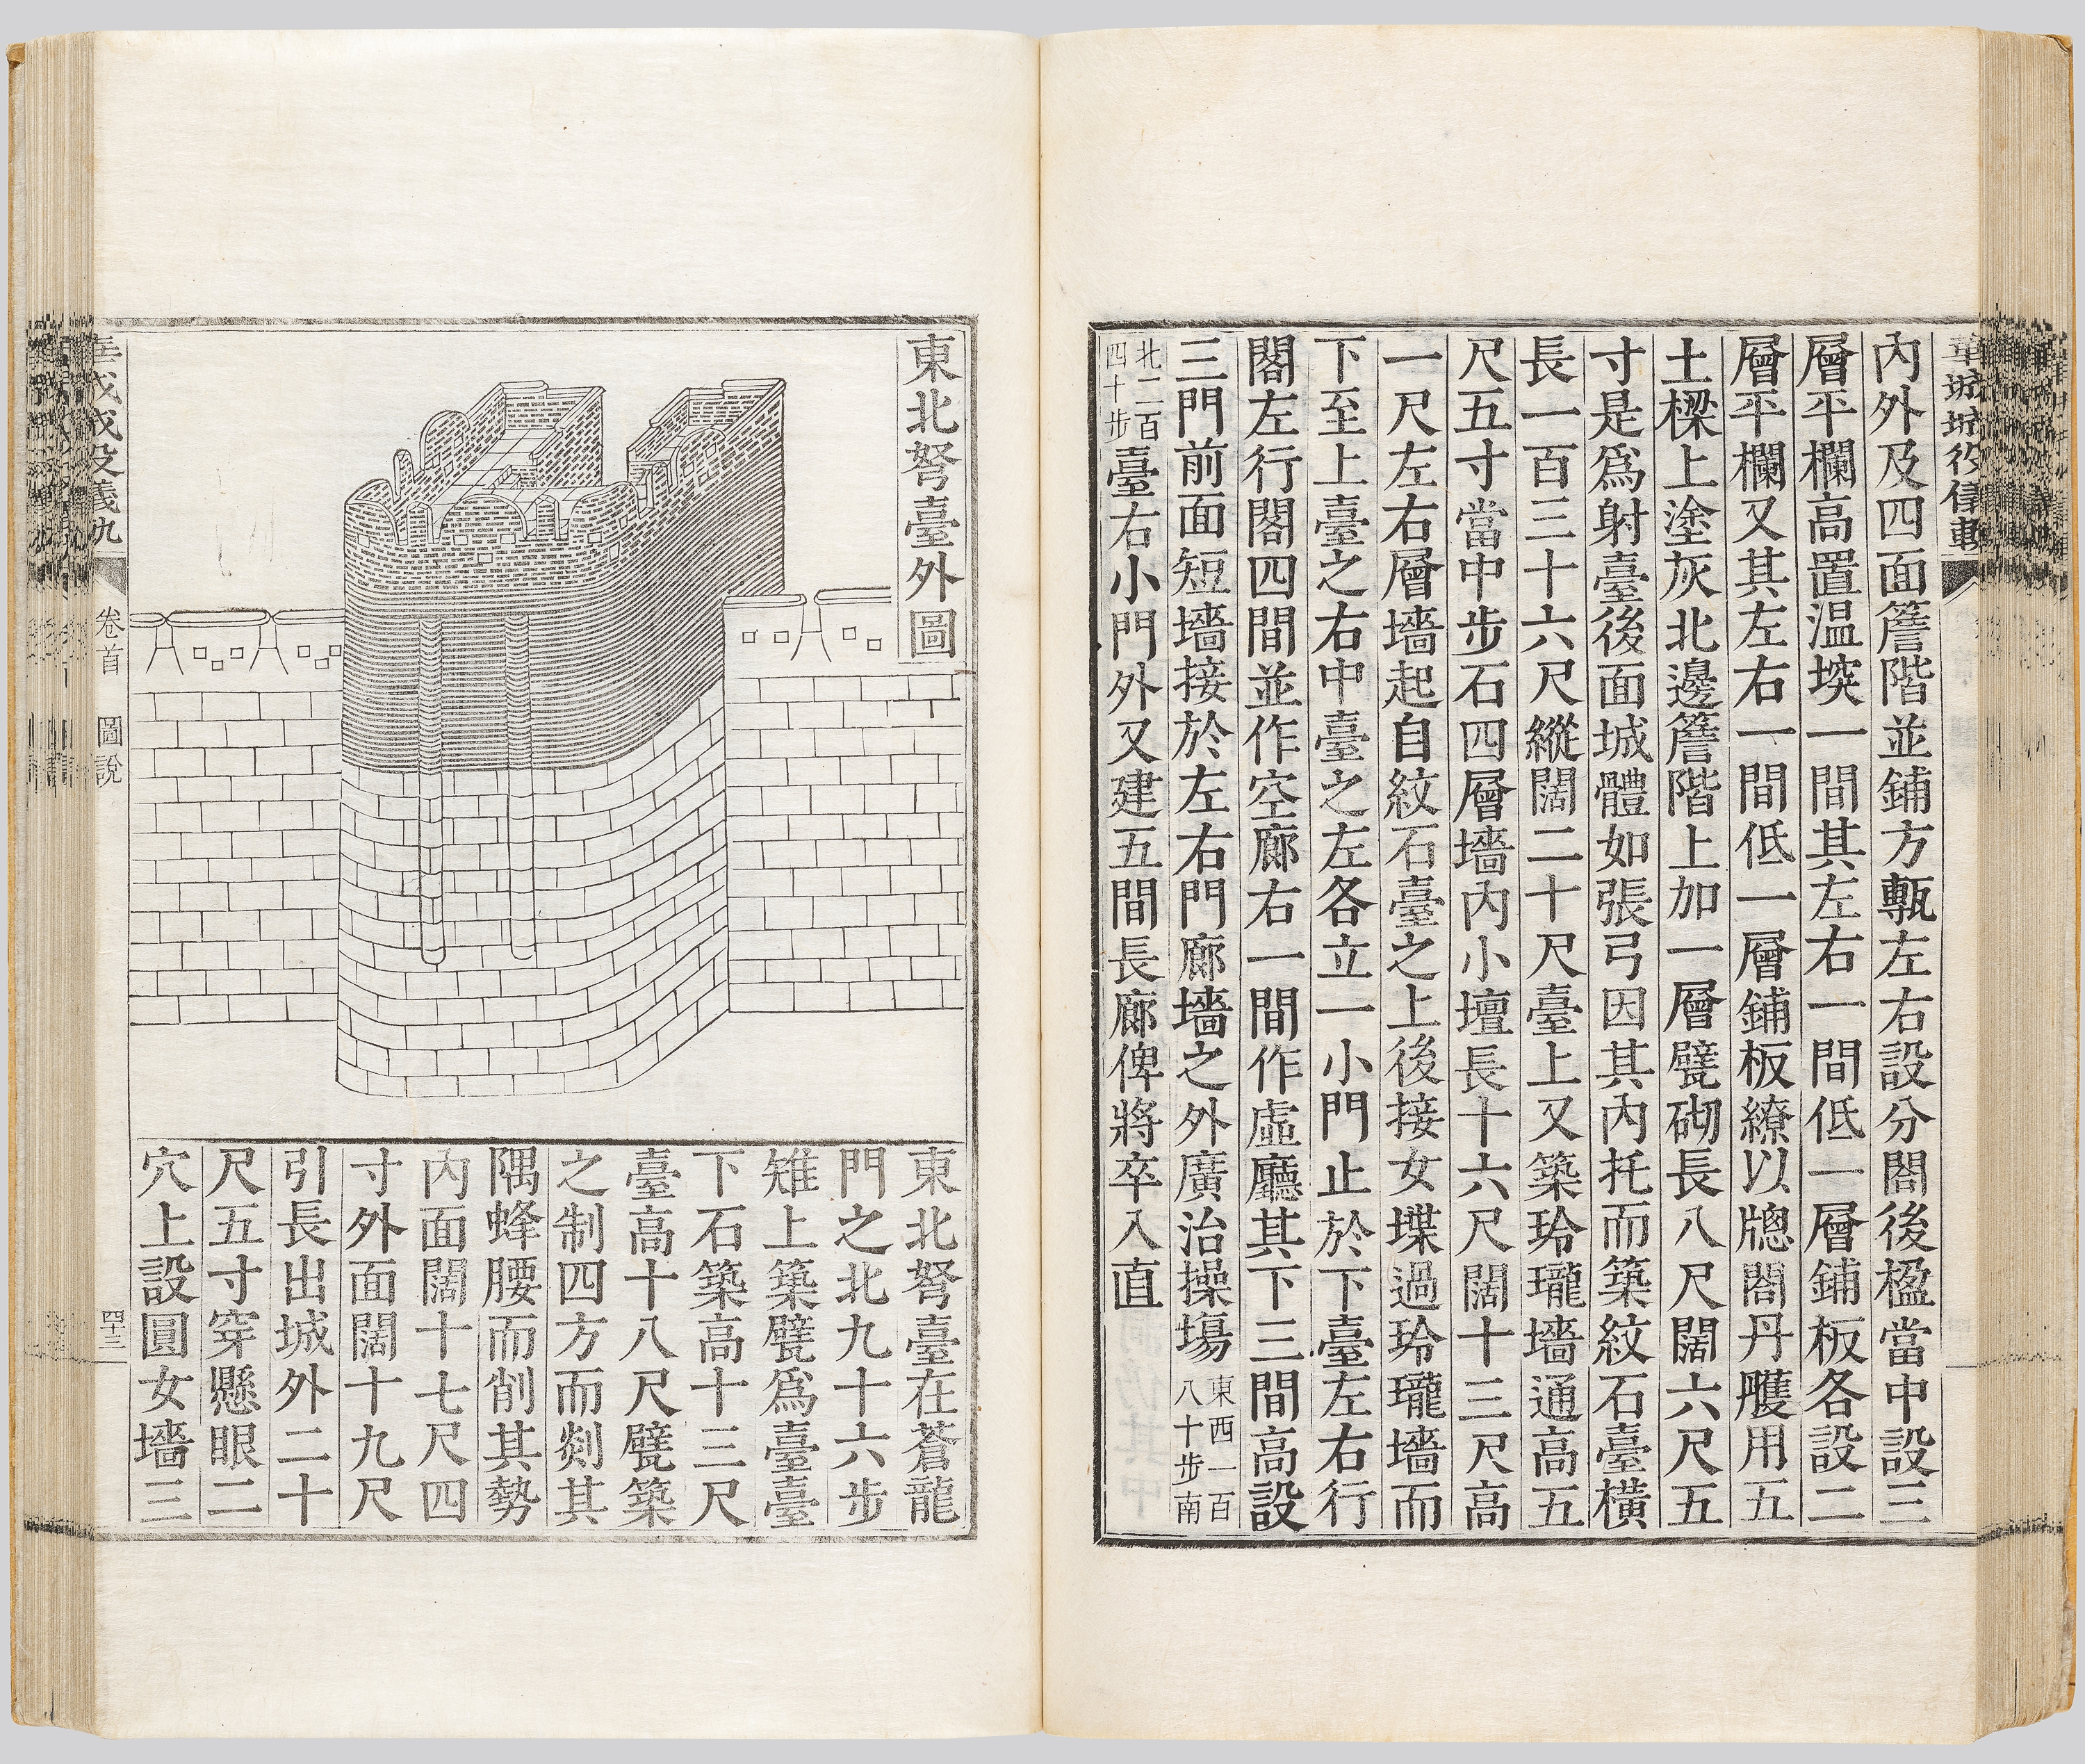 內外及四面簷階並鋪方甎左右設分閤後楹當中設三
層平欄高置温堗一間其左右一間低一層鋪板各設二
層平欄又其左右一間低一層鋪板繚以牕閤丹雘用五
土樑上塗灰北邊簷階上加一層甓砌長八尺闊六尺五
寸是爲射臺後面城體如張弓因其內托而築紋石臺橫
長一百三十六尺縱闊二十尺臺上又築玲瓏墻通高五
尺五寸當中步石四層墻內小壇長十六尺闊十三尺高
一尺左右層墻起自紋石臺之上後接女堞過玲瓏墻而
下至上臺之右中臺之左各立一小門止於下臺左右行
閣左行閣四間並作空廊右一間作虛廳其下三間高設
三門前面短墻接於左右門廊墻之外廣治操塲
東西一百
八十步南
北二百
四十步
臺右小門外又建五間長廊俾將卒入直
東北弩臺外圖
東北弩臺在蒼龍
門之北九十六步
雉上築甓爲臺臺
下石築高十三尺
臺高十八尺甓築
之制四方而剡其
隅蜂腰而削其勢
內面闊十七尺四
寸外面闊十九尺
引長出城外二十
尺五寸穿懸眼二
穴上設圓女墻三
卷首 圖說
四十三